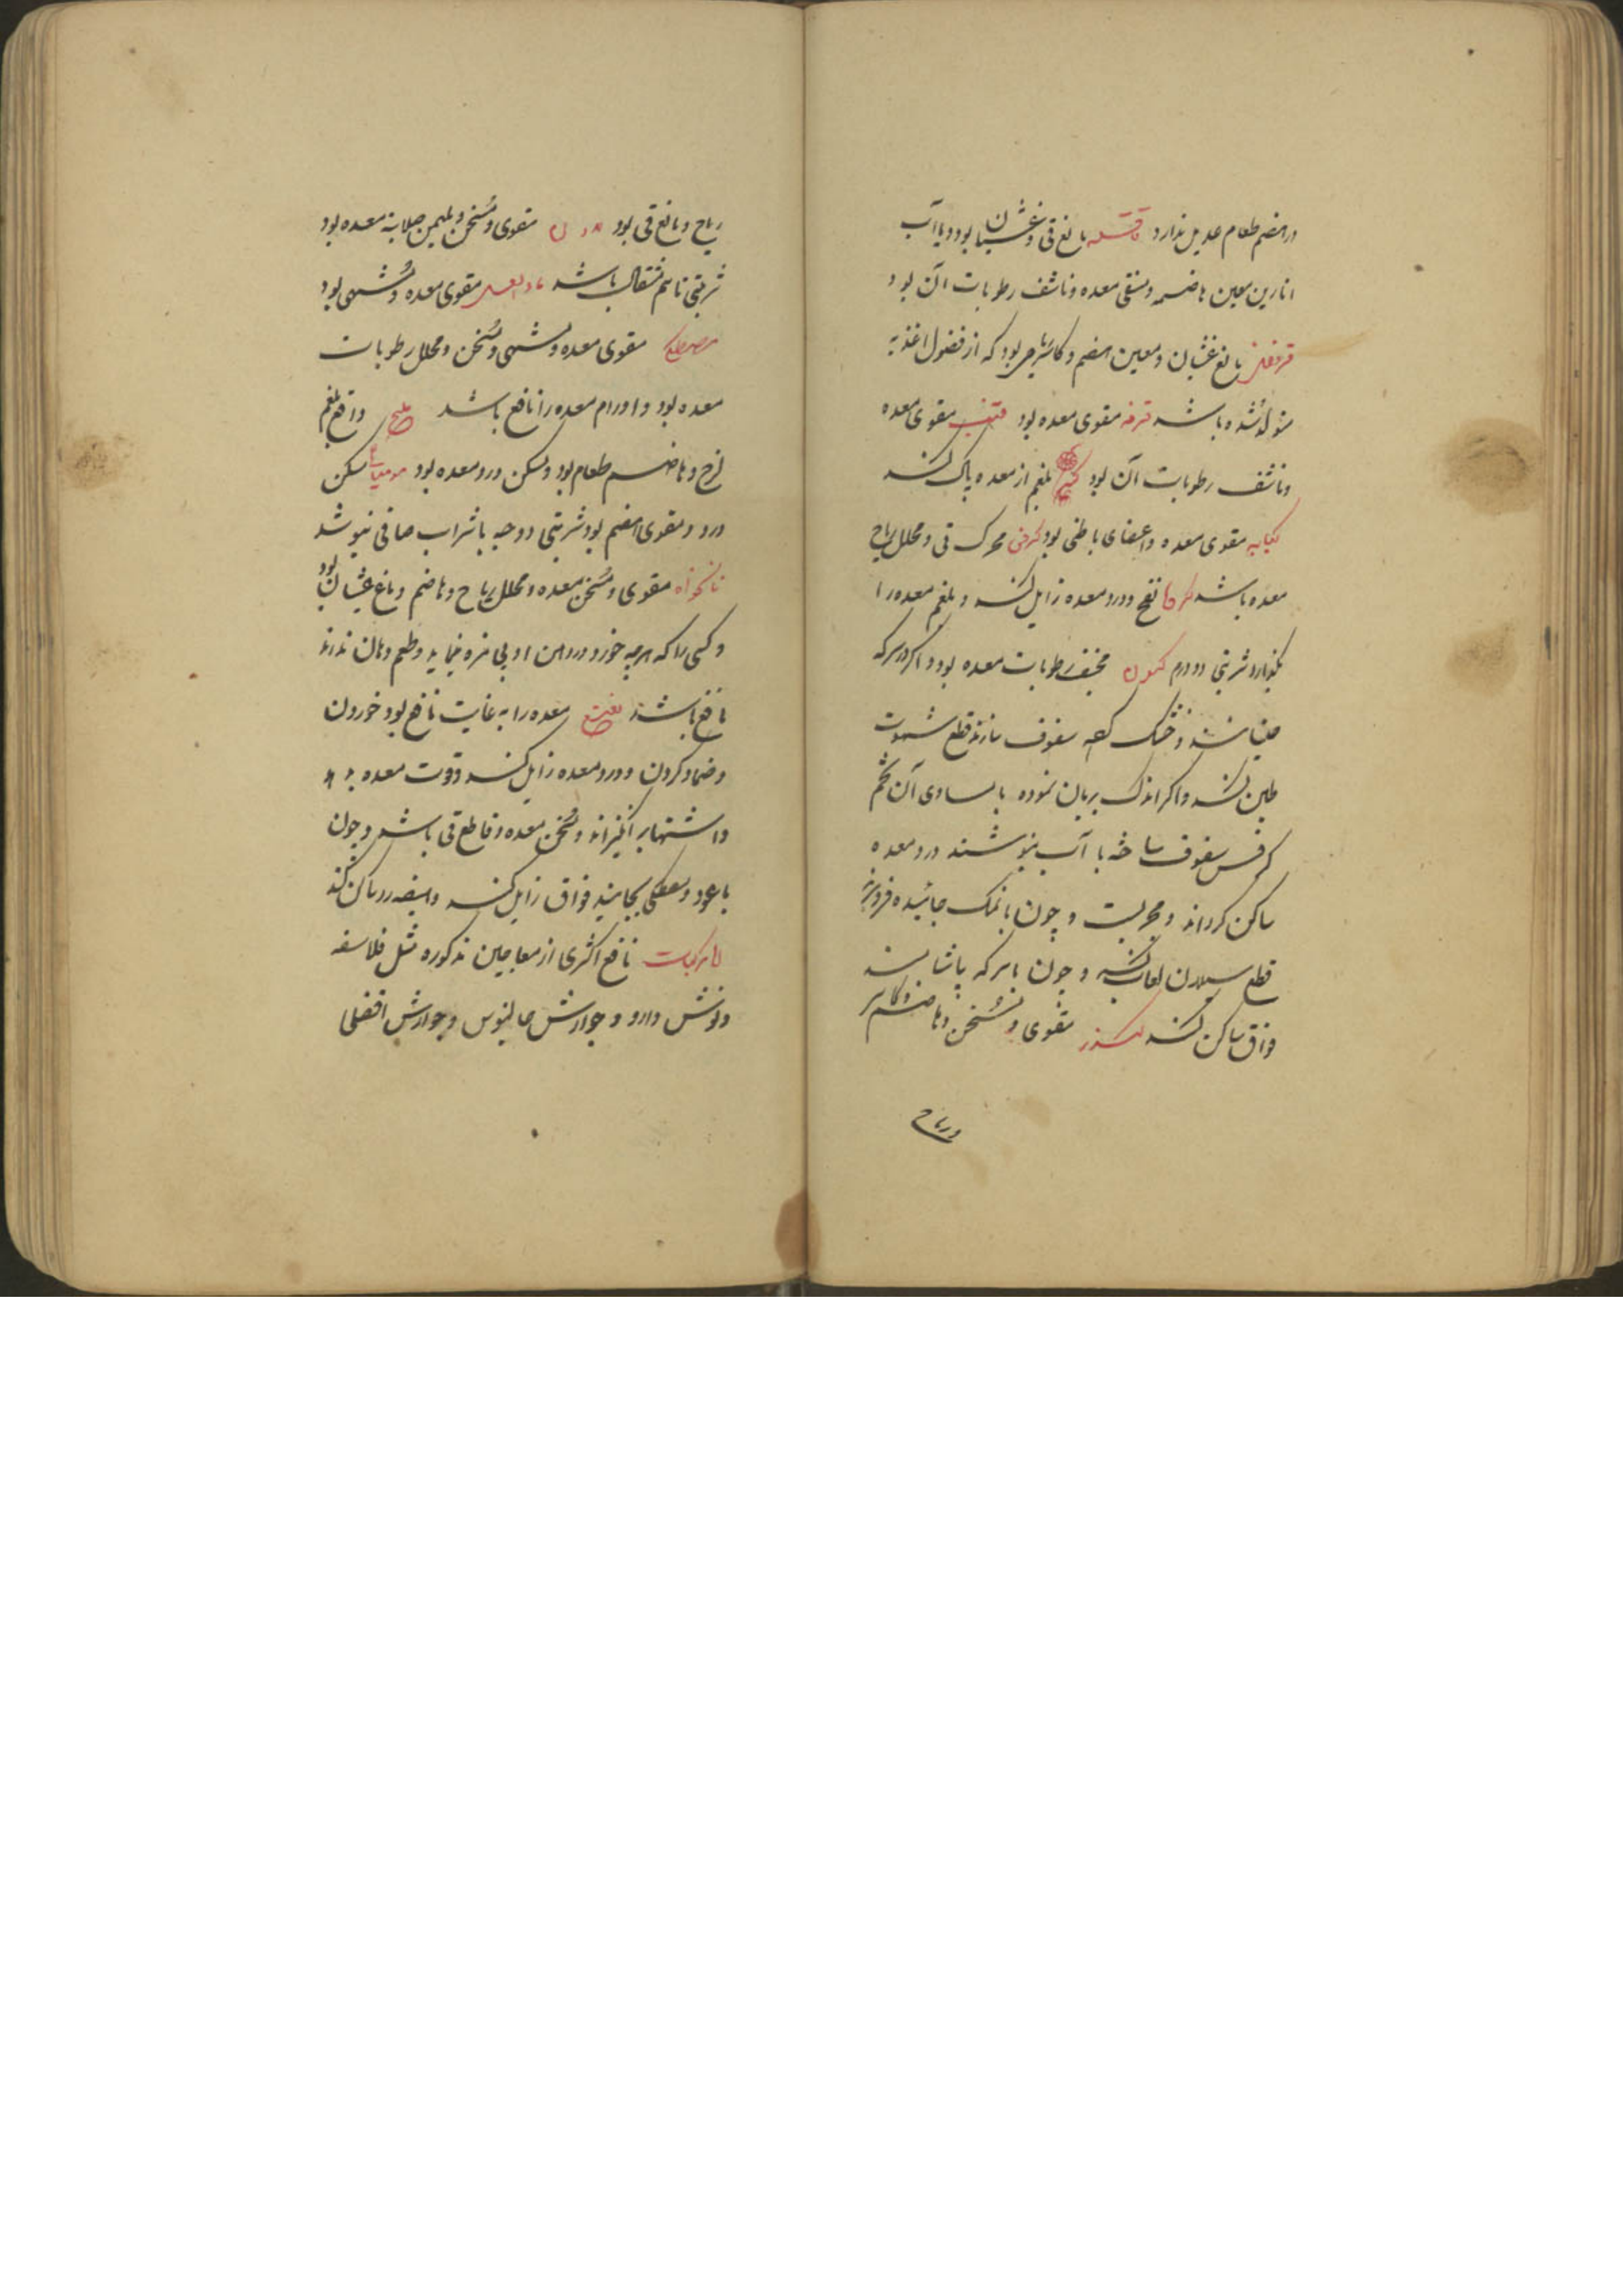 در هضم طعام عدیل ندارد قاقله مانع قی و غثیان بود و با آب
انارین معین هاضمه و منقی معده و ناشف رطوبات آن بود
قرنفل مانع غثیان و معین هضم و کاسر ریاحی بود که از فضول اغذیه
متولد شده باشد قرفه مقوی معده بود مقوی معده
و ناشف رطوبات آن بود بلغم از معده پاک کند
کبابه مقوی معده و اعضای باطنی بود کرفس محرک قی و محلل ریاح
معده باشد نفخ و درد معده زایل کند و بلغم معده را
بگذارد شربتی دو درم کمون مجفف رطوبات معده بود و اگر در سرکه
خیسانند و خشک کرده سفوف سازند قطع شهوت
طین کند و اگر اندک بریان نموده با مساوی آن تخم
کرفس سفوف ساخته با آب بنوشند درد معده
ساکن گرداند و مجربست و چون با نمک جائیده فرو برند
قطع سیلان لعاب کند و چون با سرکه بیاشامند
فواق ساکن کند کندر مقوی و مسخن و هاضم و کاسر
و ریاح
ریاح و مانع قی بود مقوی و مسخن و ملین صلابة معده بود
شربتی تا نیم مثقال باشد ماء العسل مقوی معده و مشهی بود
مصطکی مقوی معده و مشهی و مسخن و محلل رطوبات
معده بود و اورام معده را نافع باشد ملح دافع بلغم
لزج و هاضم طعام بود و مسکن درد معده بود مومیایی مسکن
درد و مقوی هضم بود شربتی دو حبه با شراب صافی بنوشد
نانخواه مقوی و مسخن معده و محلل ریاح و هاضم و مانع غثیان بود
و کسی را که هرچه خورد در دهن او بی مزه نماید و طعم دهان نداند
نافع باشد نعنع معده را به غایت نافع بود خوردن
و ضماد کردن و درد معده زایل کند و قوت معده بدهد
و اشتها بر انگیزاند و مسخن معده و قاطع قی باشد و چون
با عود و مصطکی بجایند فواق زایل کند و هیضه را ساکن کند
المرکبات نافع اکثری از معاجین مذکوره مثل فلاسفه
و نوش دارو و جوارش جالینوس و جوارش افضلی